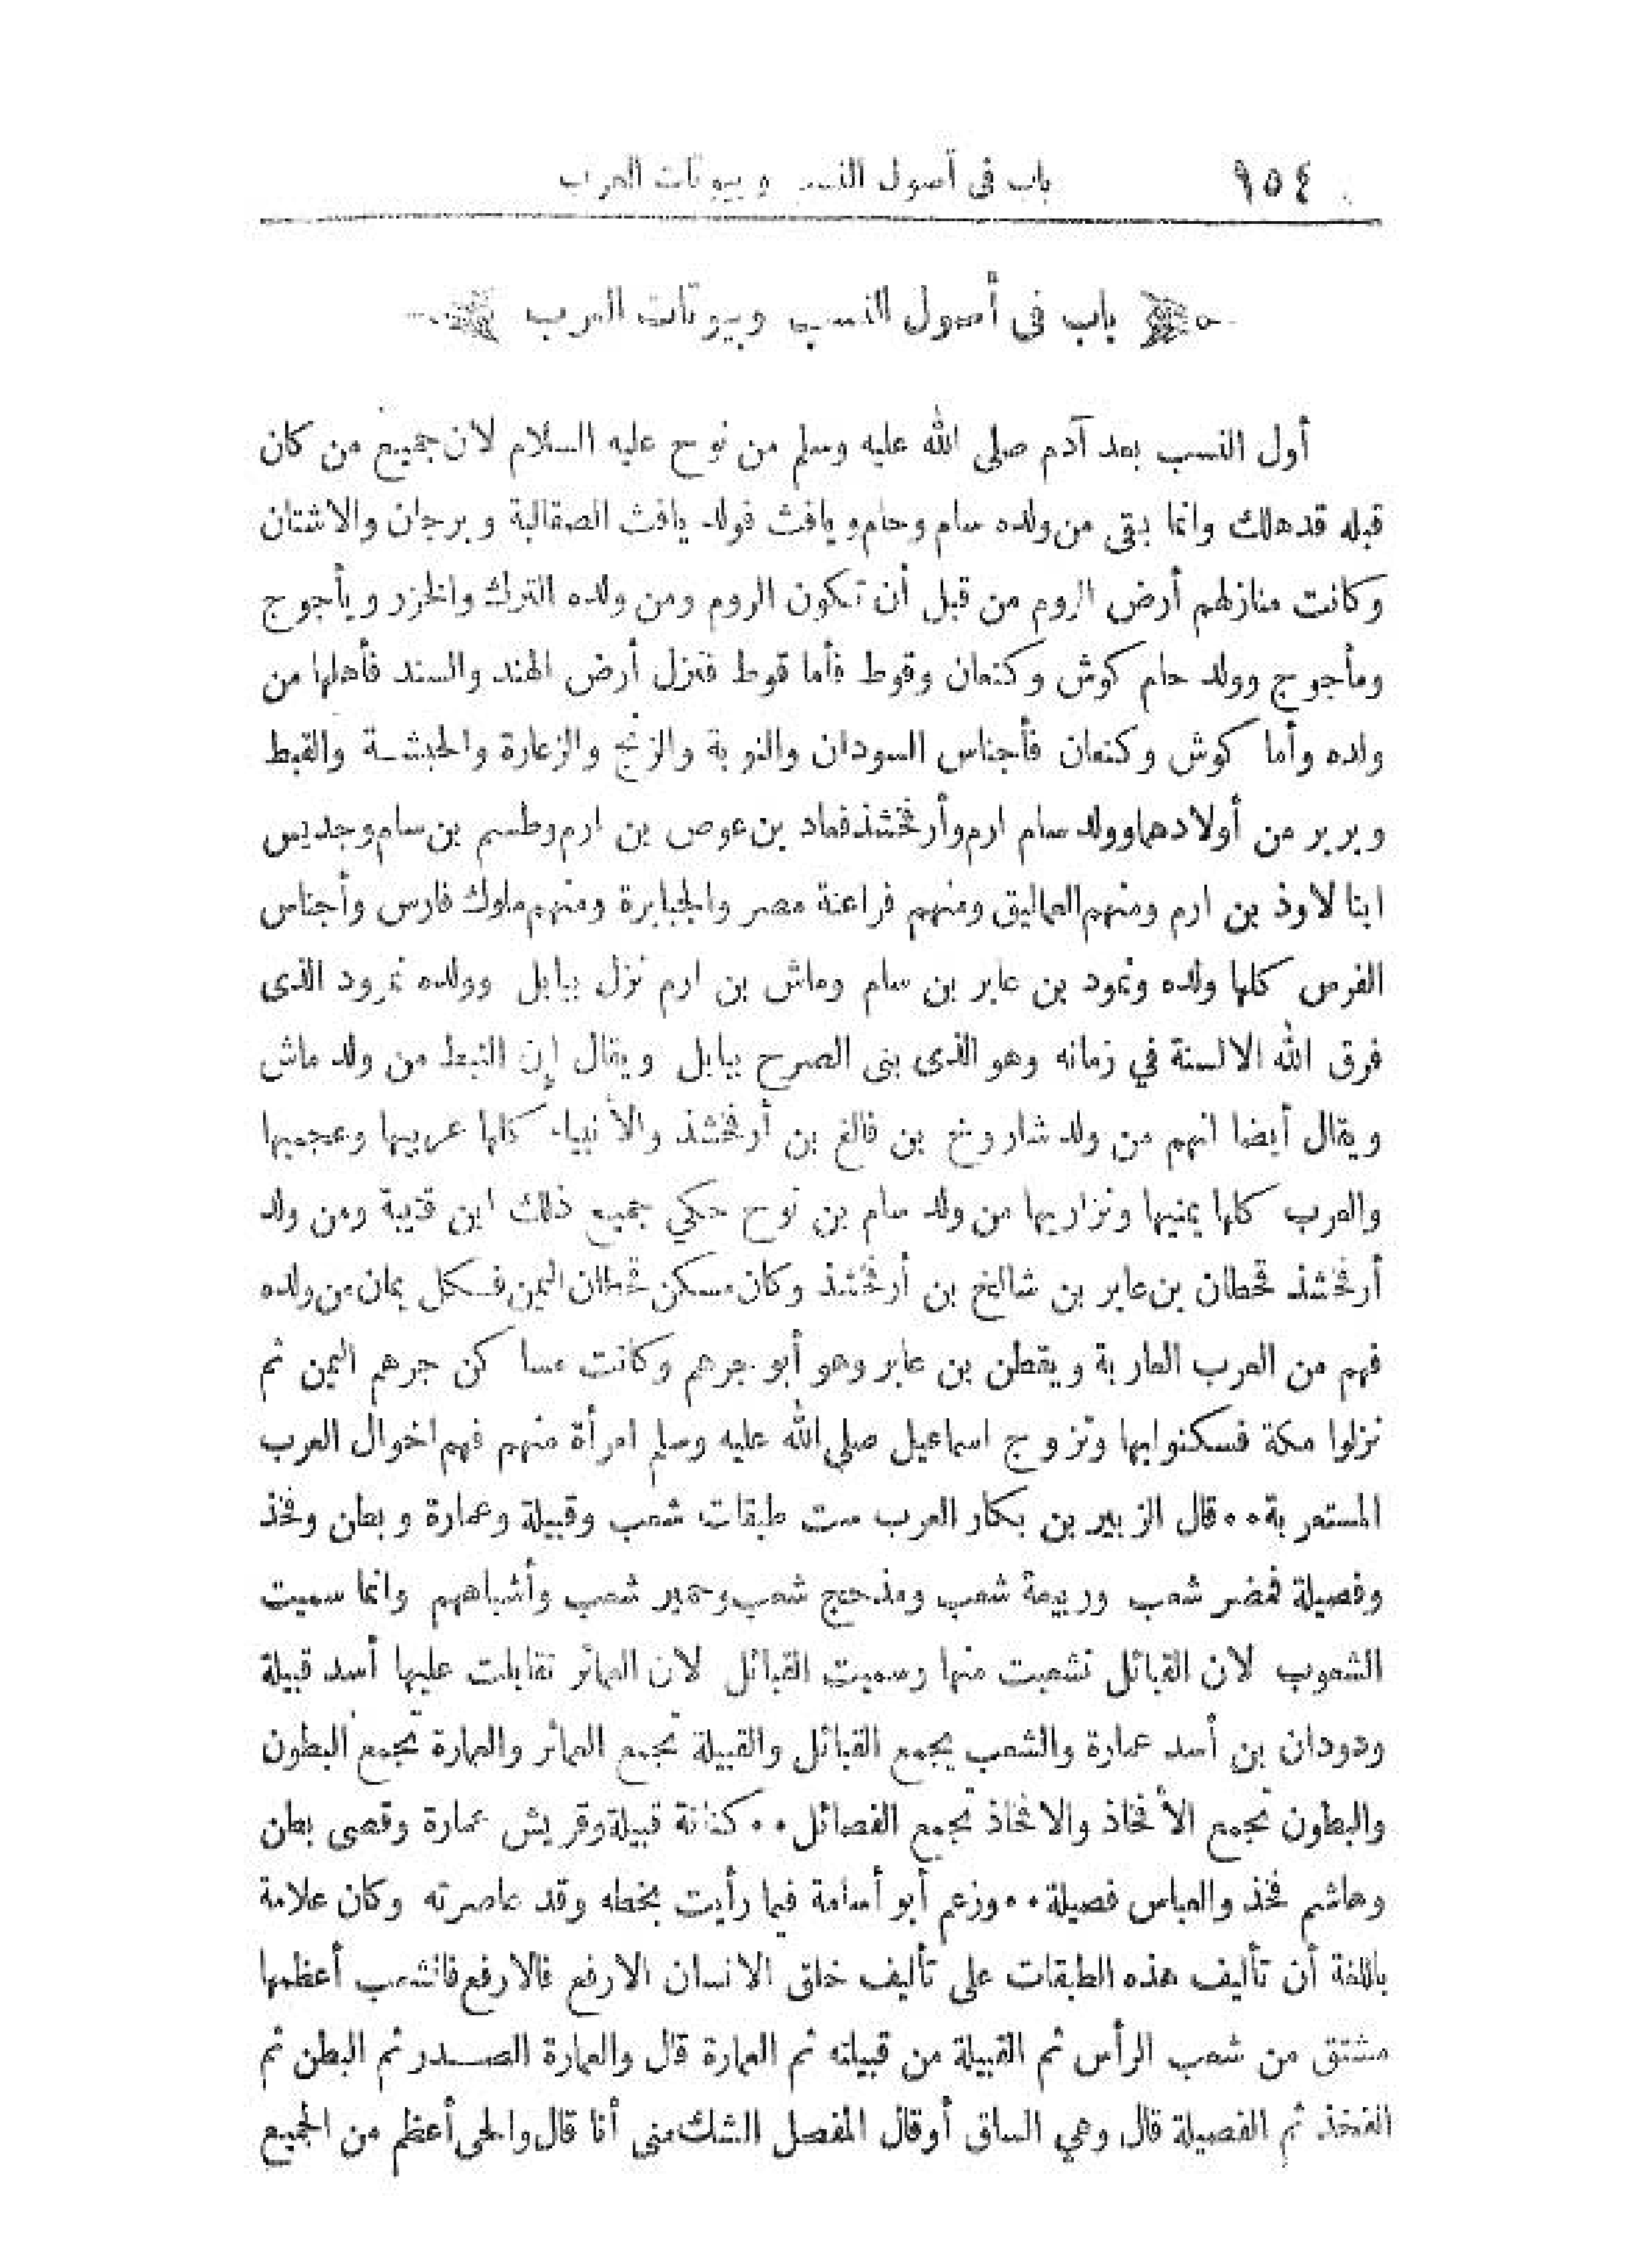 ١٥٤ باب في أصول النسب وبيوتات العرب
باب في أصول النسب وبيوتات العرب
أول النسب بعد آدم صلى الله عليه وسلم من نوح عليه السلام لان جميع من كان
قبله قد هلك وانما بقى من ولده سام وحام ويافث فولد يافث الصقالبة وبرجان والاشتان
وكانت منازلهم أرض الروم من قبل أن تكون الروم ومن ولده الترك والخزر ويأجوج
ومأجوج وولد حام كوش وكنعان وقوط فأما قوط فنزل أرض الهند والسند فأهلها من
ولده وأما كوش وكنعان فأجناس السودان والنوبة والزنج والزعارة والحبشة والقبط
وبربر من أولادهما وولد سام ارم وأرفخشذ فعاد بن عوص بن ارم وطسم بن سام وجديس
ابنا لاوذ بن ارم ومنهم العماليق ومنهم فراعنة مصر والجبابرة ومنهم ملوك فارس وأجناس
الفرس كلها ولده وثمود بن عابر بن سام وماش بن ارم نزل ببابل وولده نمرود الذى
فرق الله الالسنة في زمانه وهو الذى بنى الصرح ببابل ويقال إن النبط من ولد ماش
ويقال أيضا انهم من ولد شاروخ بن فالغ بن أرفخشذ والأنبياء كلها عربيها وعجميها
والعرب كلها يمنيها ونزاريها من ولد سام بن نوح حكي جميع ذلك ابن قتيبة ومن ولد
أرفخشذ قحطان بن عابر بن شالخ بن أرفخشذ وكان مسكن قحطان اليمن فكل يمان من ولده
فهم من العرب العاربة ويقطن بن عابر وهو أبو جرهم وكانت مساكن جرهم اليمن ثم
نزلوا مكة فسكنوا بها وتزوج اسماعيل صلى الله عليه وسلم امرأة منهم فهم اخوال العرب
المستعربة ٠٠ قال الزبير بن بكار العرب ست طبقات شعب وقبيلة وعمارة وبطن وفخذ
وفصيلة فمضر شعب وربيعة شعب ومذحج شعب وحمير شعب وأشباههم وانما سميت
الشعوب لان القبائل تشعبت منها وسميت القبائل لان العمائر تقابلت عليها أسد قبيلة
ودودان بن أسد عمارة والشعب يجمع القبائل والقبيلة تجمع العمائر والعمارة تجمع البطون
والبطون تجمع الأفخاذ والافخاذ تجمع الفصائل ٠٠ كنانة قبيلة وقريش عمارة وقصى بطن
وهاشم فخذ والعباس فصيلة ٠٠ وزعم أبو أسامة فيما رأيت بخطه وقد عاصرته وكان علامة
باللغة أن تأليف هذه الطبقات على تأليف خلق الانسان الارفع فالارفع فالشعب أعظمها
مشتق من شعب الرأس ثم القبيلة من قبيلته ثم العمارة قال والعمارة الصدر ثم البطن ثم
الفخذ ثم الفصيلة قال وهي الساق أو قال المفصل الشك منى أنا قال والحى أعظم من الجميع